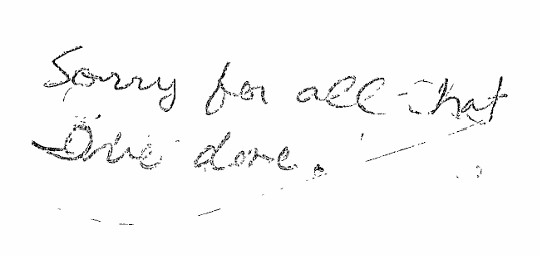 Sorry for all that
I've done.